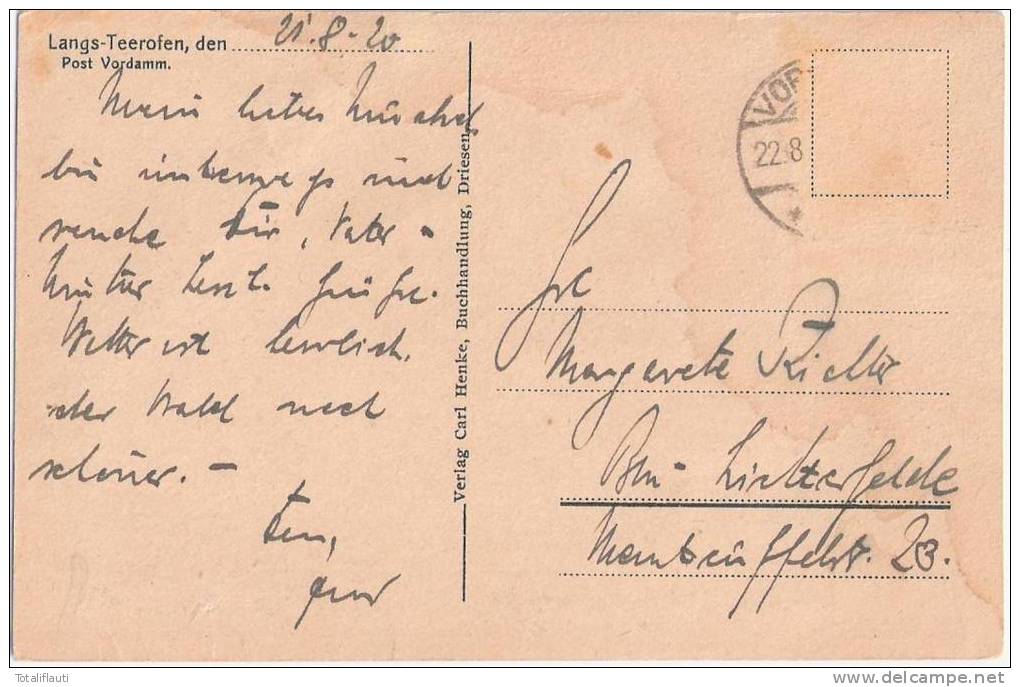 Langs-Teerofen, den 21.8.20
Post Vordamm.
Mein liebes
bin unterwegs und
sende Dir, Vater u
Mutter herzl. Grüße.
Wetter ist herrlich,
der Wald noch
schöner. –
Dein,
Verlag Carl Henke, Buchhandlung, Driesen.
VOR
22.8
Frl
Margarete Richter
Bln-Lichterfelde
Manteuffelstr. 23.
Totaliflauti
www.delcampe.net